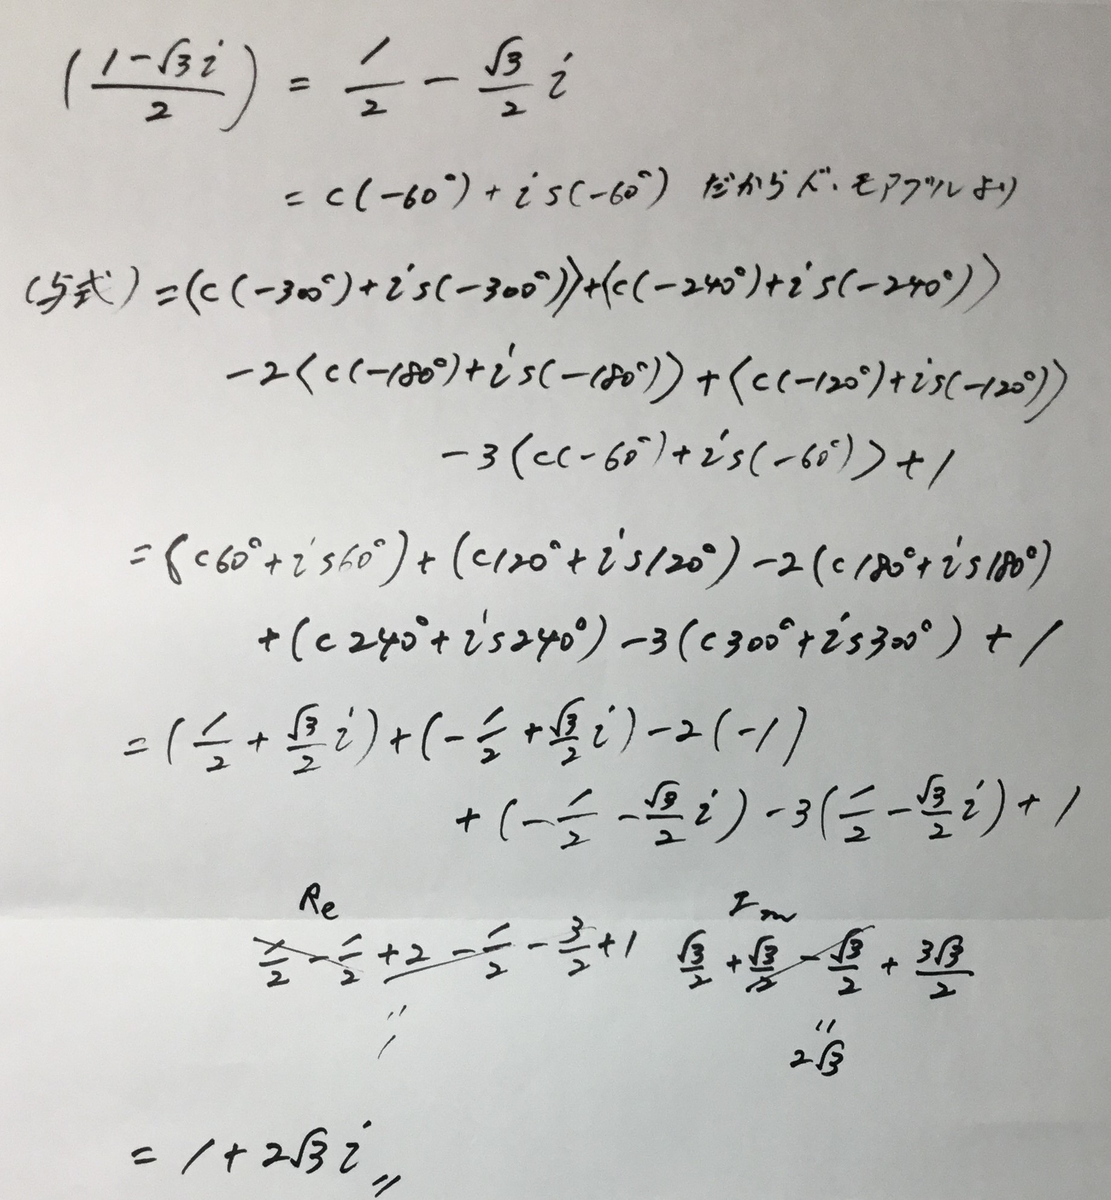 (1-√3i/2) = 1/2 - √3/2 i
= c(-60°) + i s(-60°) だからド・モアブルより
(与式) = (c(-300°)+i s(-300°))+(c(-240°)+i s(-240°))
-2(c(-180°)+i s(-180°))+(c(-120°)+i s(-120°))
-3(c(-60°)+i s(-60°))+1
=(c60°+i s60°)+(c120°+i s120°)-2(c180°+i s180°)
+(c240°+i s240°)-3(c300°+i s300°)+1
=(1/2+√3/2 i)+(-1/2+√3/2 i)-2(-1)
+(-1/2-√3/2 i)-3(1/2-√3/2 i)+1
Re Im
1/2-1/2+2-1/2-3/2+1 √3/2+√3/2-√3/2+3√3/2
〃 〃
1 2√3
= 1+2√3i〃